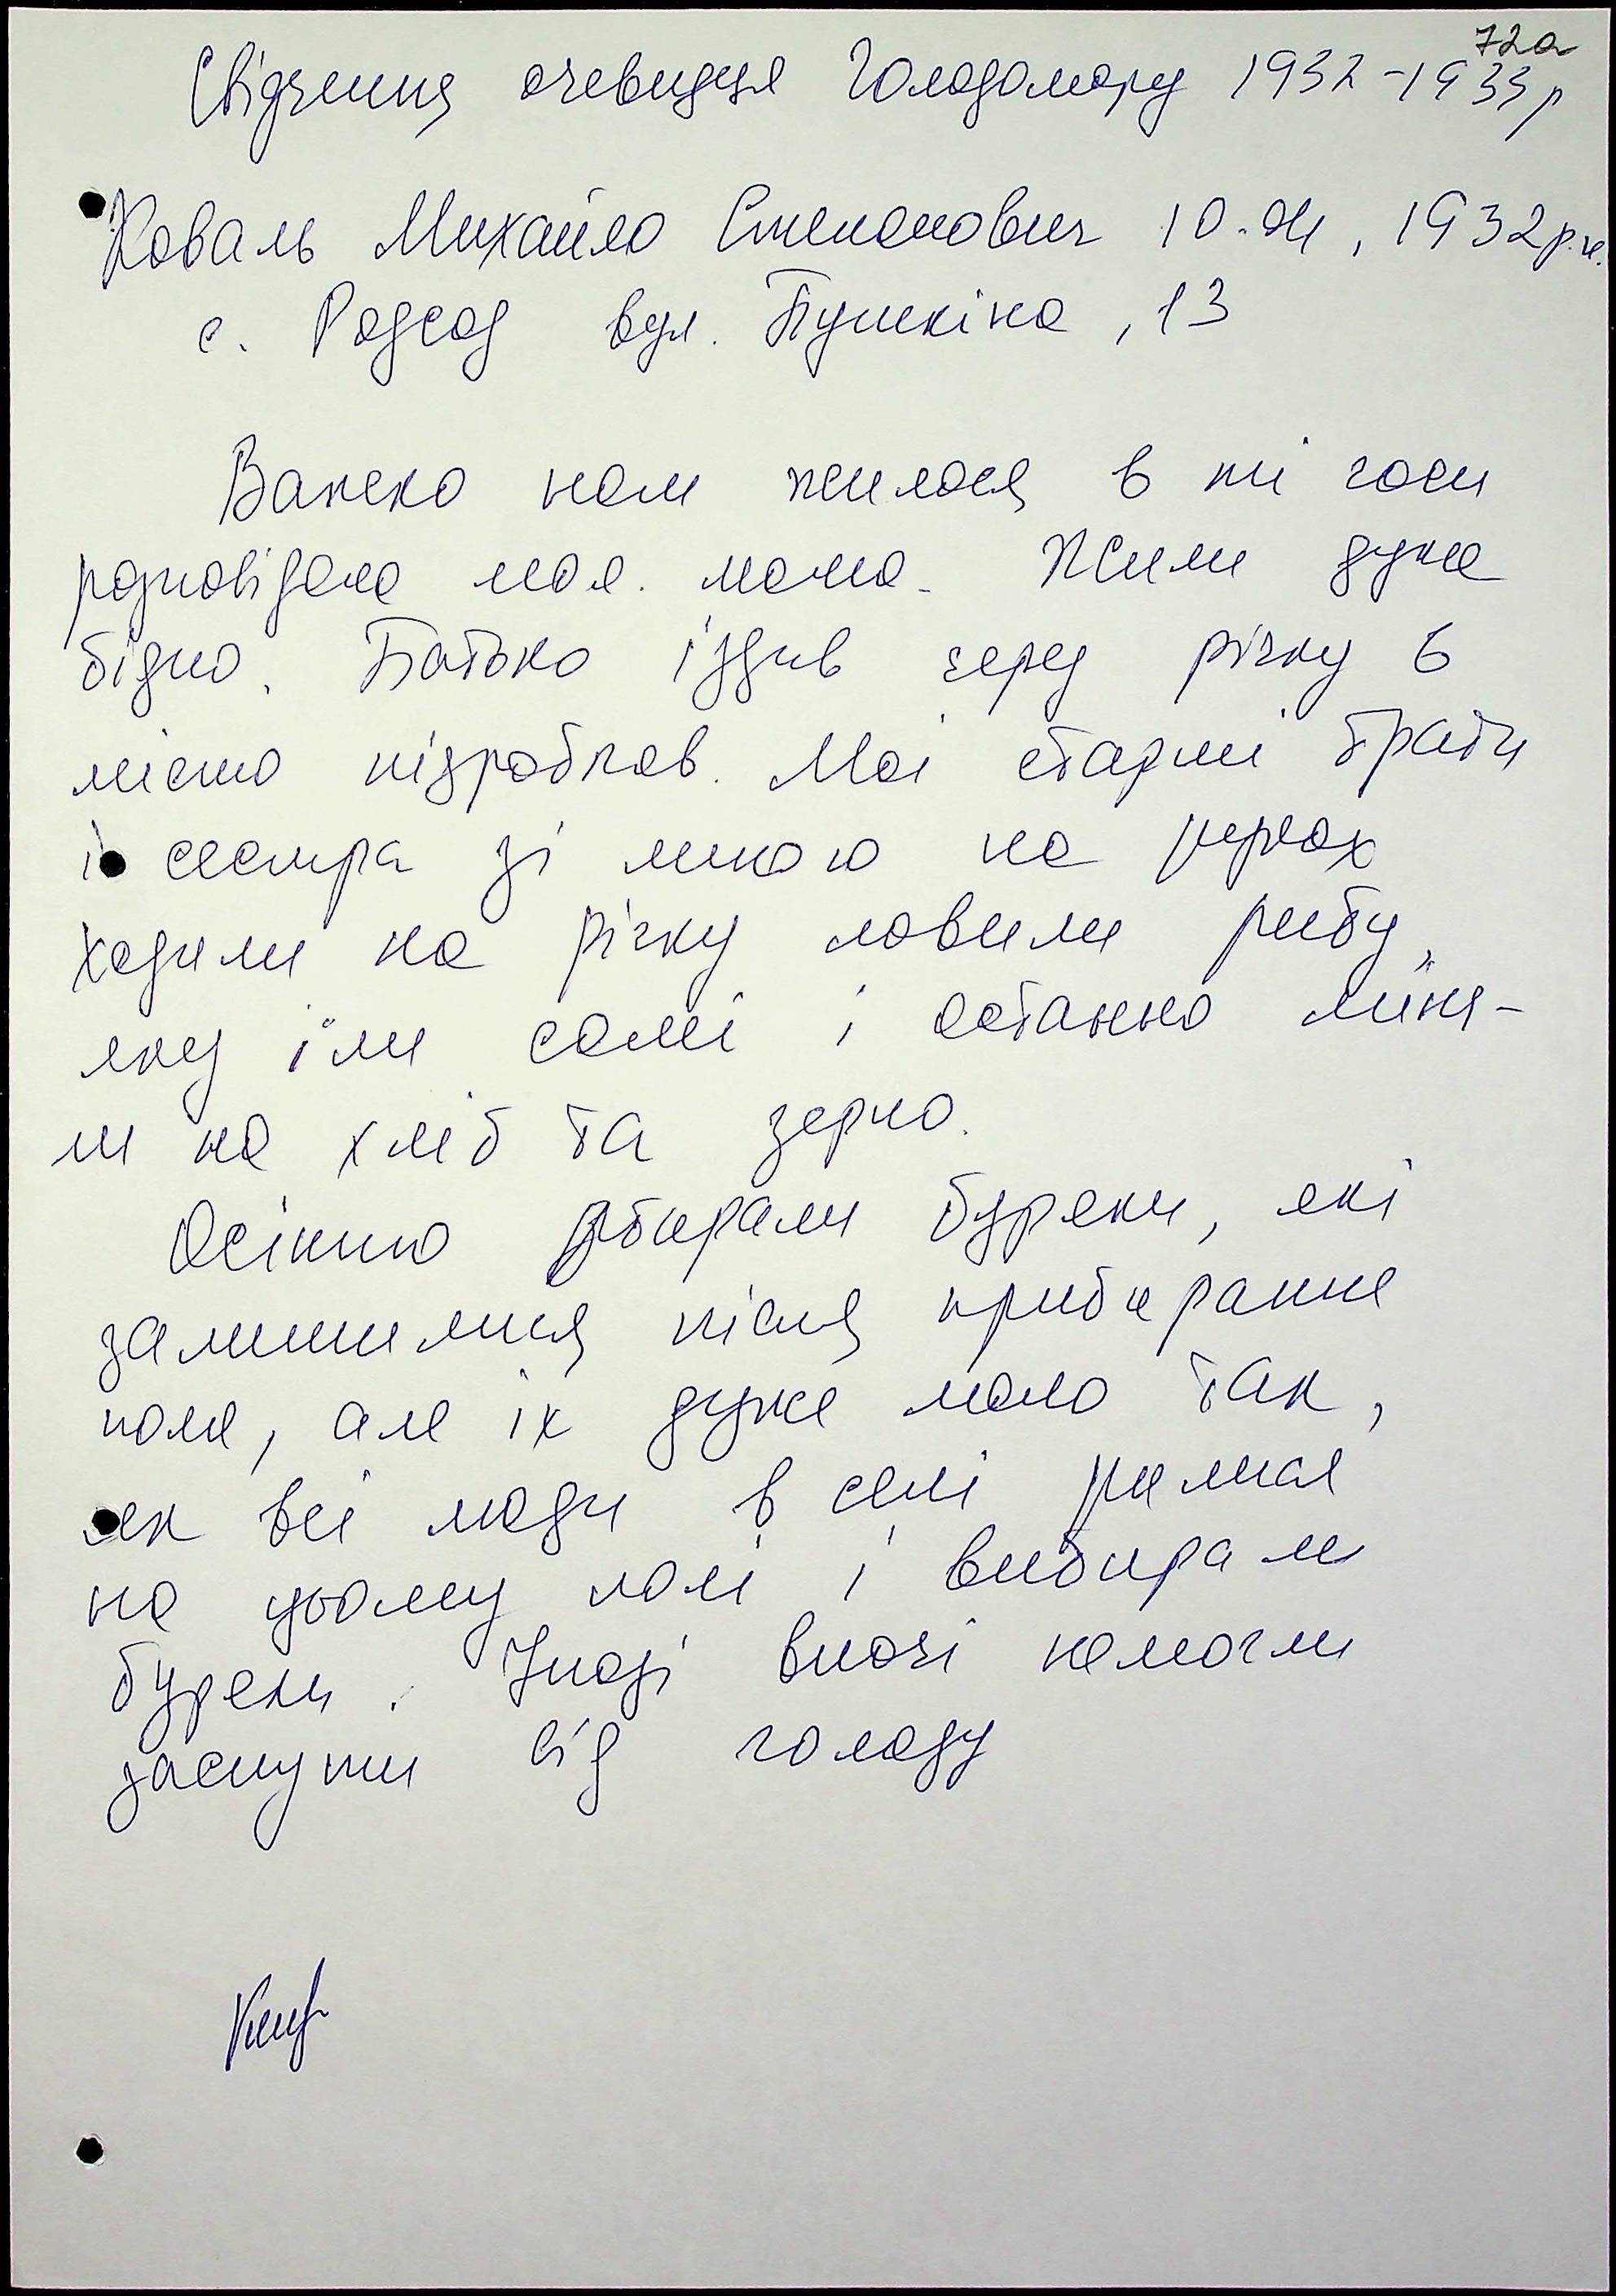 72а
Свідчення очевидця Голодомору 1932-1933р
Коваль Михайло Степанович 10.04, 1932р.н.
с. Радсад вул. Пушкіна, 13
Важко нам жилося в ті часи
розповідала моя. мама. Жили дуже
бідно. Батько їздив через річку в
місто підробляв. Мої старші брати
і сестра зі мною на руках
ходили на річку ловили рибу,
яку їли самі і останню міня-
ли на хліб та зерно.
Осінню збирали буряки, які
залишилися після прибирання
поля, але їх дуже мало так,
як всі люди в селі рилися
на цьому полі і вибирали
буряки. Іноді вночі немогли
заснути від голоду